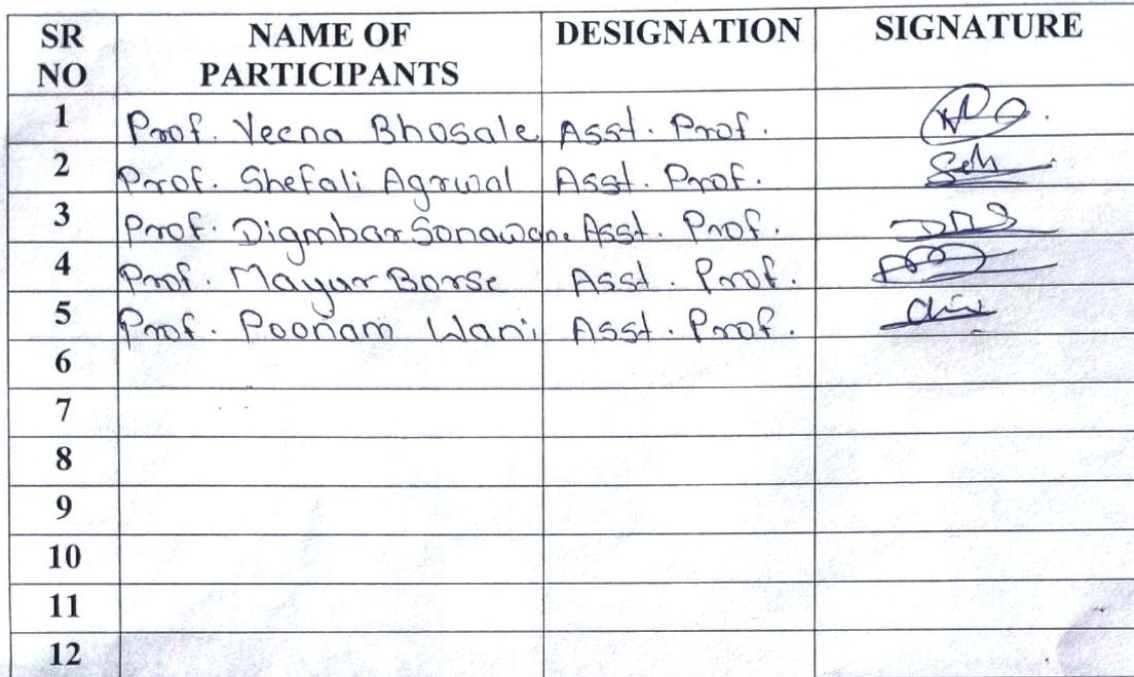 SR NO NAME OF PARTICIPANTS DESIGNATION SIGNATURE
1 Prof. Veena Bhosale Asst. Prof.
2 Prof. Shefali Agrwal Asst. Prof.
3 Prof. Digmbar Sonawane Asst. Prof.
4 Prof. Mayur Borse Asst. Prof.
5 Prof. Poonam Wani Asst. Prof.
6
7
8
9
10
11
12